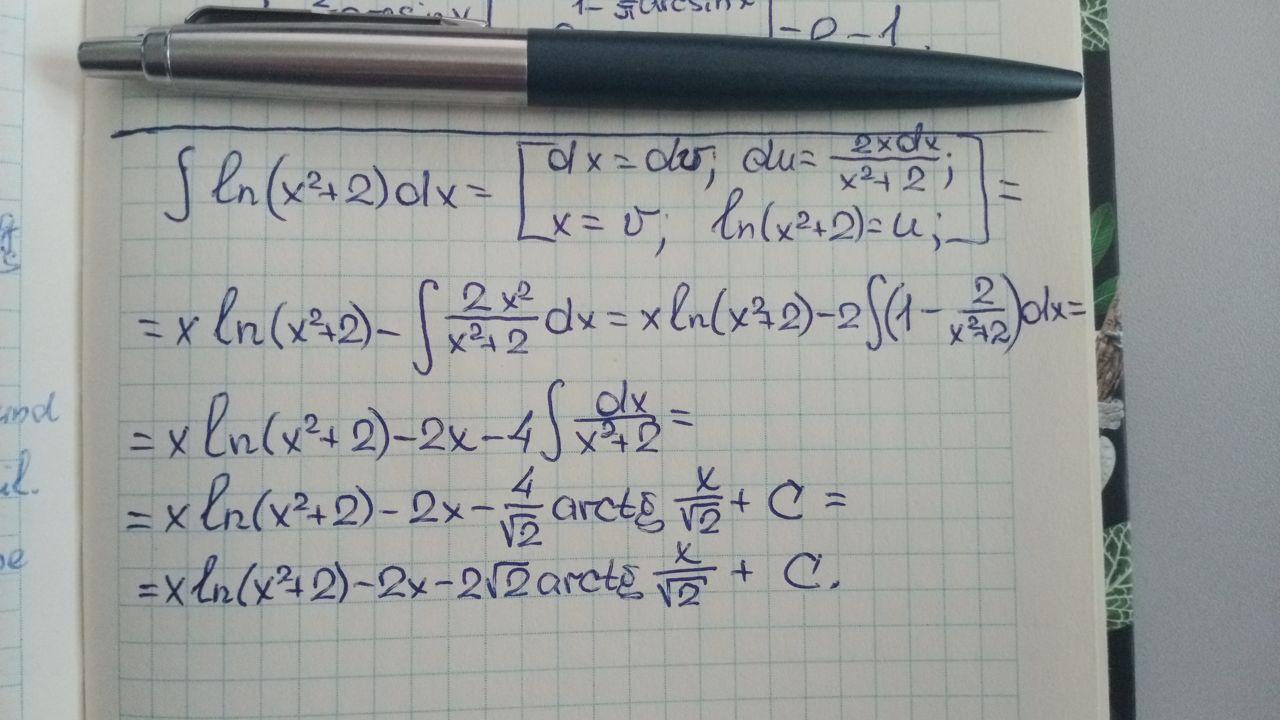 1 - arcsinx
= 0 - 1.
∫ ln(x²+2)dx = [dx = dv; du = 2xdx/(x²+2);
x = v; ln(x²+2) = u;] =
= x ln(x²+2) - ∫ 2x²/(x²+2) dx = x ln(x²+2) - 2∫(1 - 2/(x²+2))dx =
= x ln(x²+2) - 2x - 4∫ dx/(x²+2) =
= x ln(x²+2) - 2x - 4/√2 arctg x/√2 + C =
= x ln(x²+2) - 2x - 2√2 arctg x/√2 + C.
und
il.